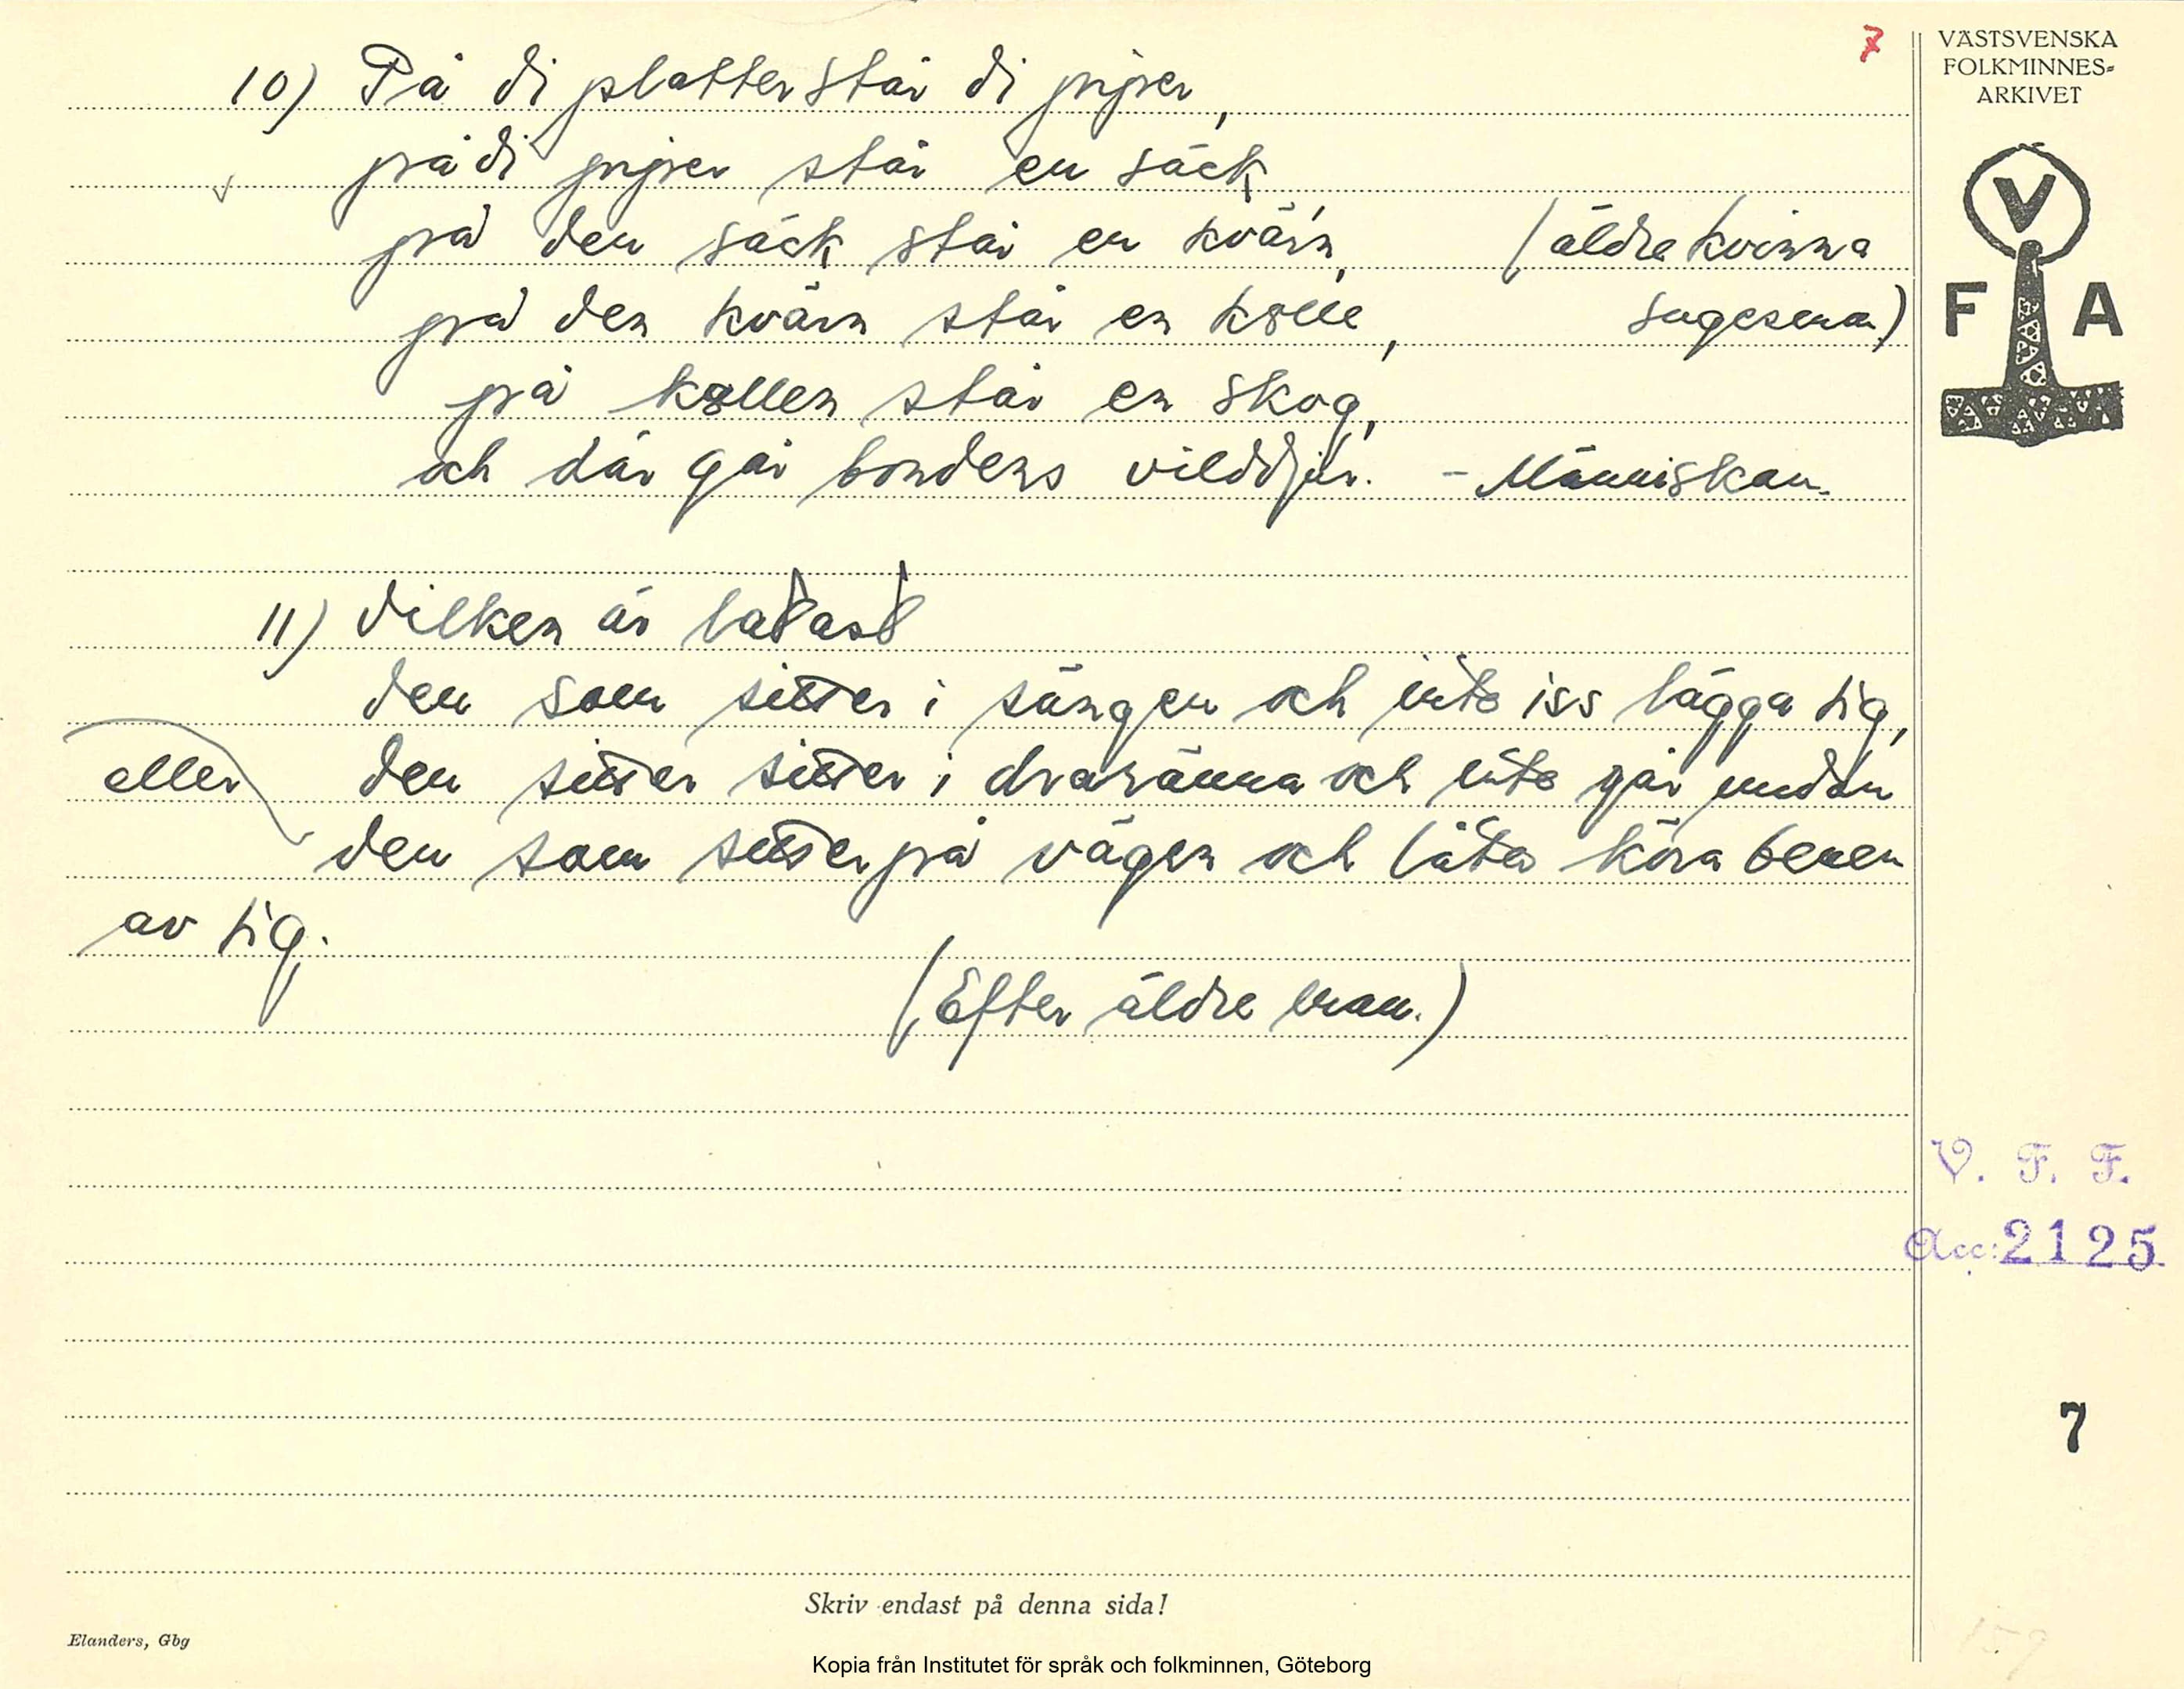 7
VÄSTSVENSKA
FOLKMINNES-
ARKIVET
V
F A
10) På di platter står di piper,
på di piper står en säck
på den säck står en kvärn, (äldre kvinna
på den kvärn står en kolle, sagesman)
på kollen står en skog,
och där går bondens vilddjur. - Människan.
11) Vilken är latast
den som sitter i sängen och inte iss lägga sig,
eller den sitter sitter i och inte går undan
den som sitter på vägen och låta köra benen
av sig.
(Efter äldre man.)
V. F. F.
Acc: 2125
7
Skriv endast på denna sida!
Elanders, Gbg
Kopia från Institutet för språk och folkminnen, Göteborg